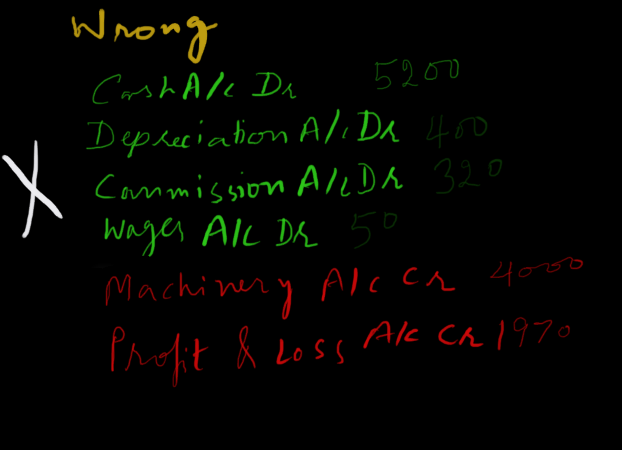 Wrong
Cash A/c Dr 5200
Depreciation A/c Dr 400
Commission A/c Dr 320
Wages A/c Dr 50
Machinery A/c Cr 4000
Profit & Loss A/c Cr 1970